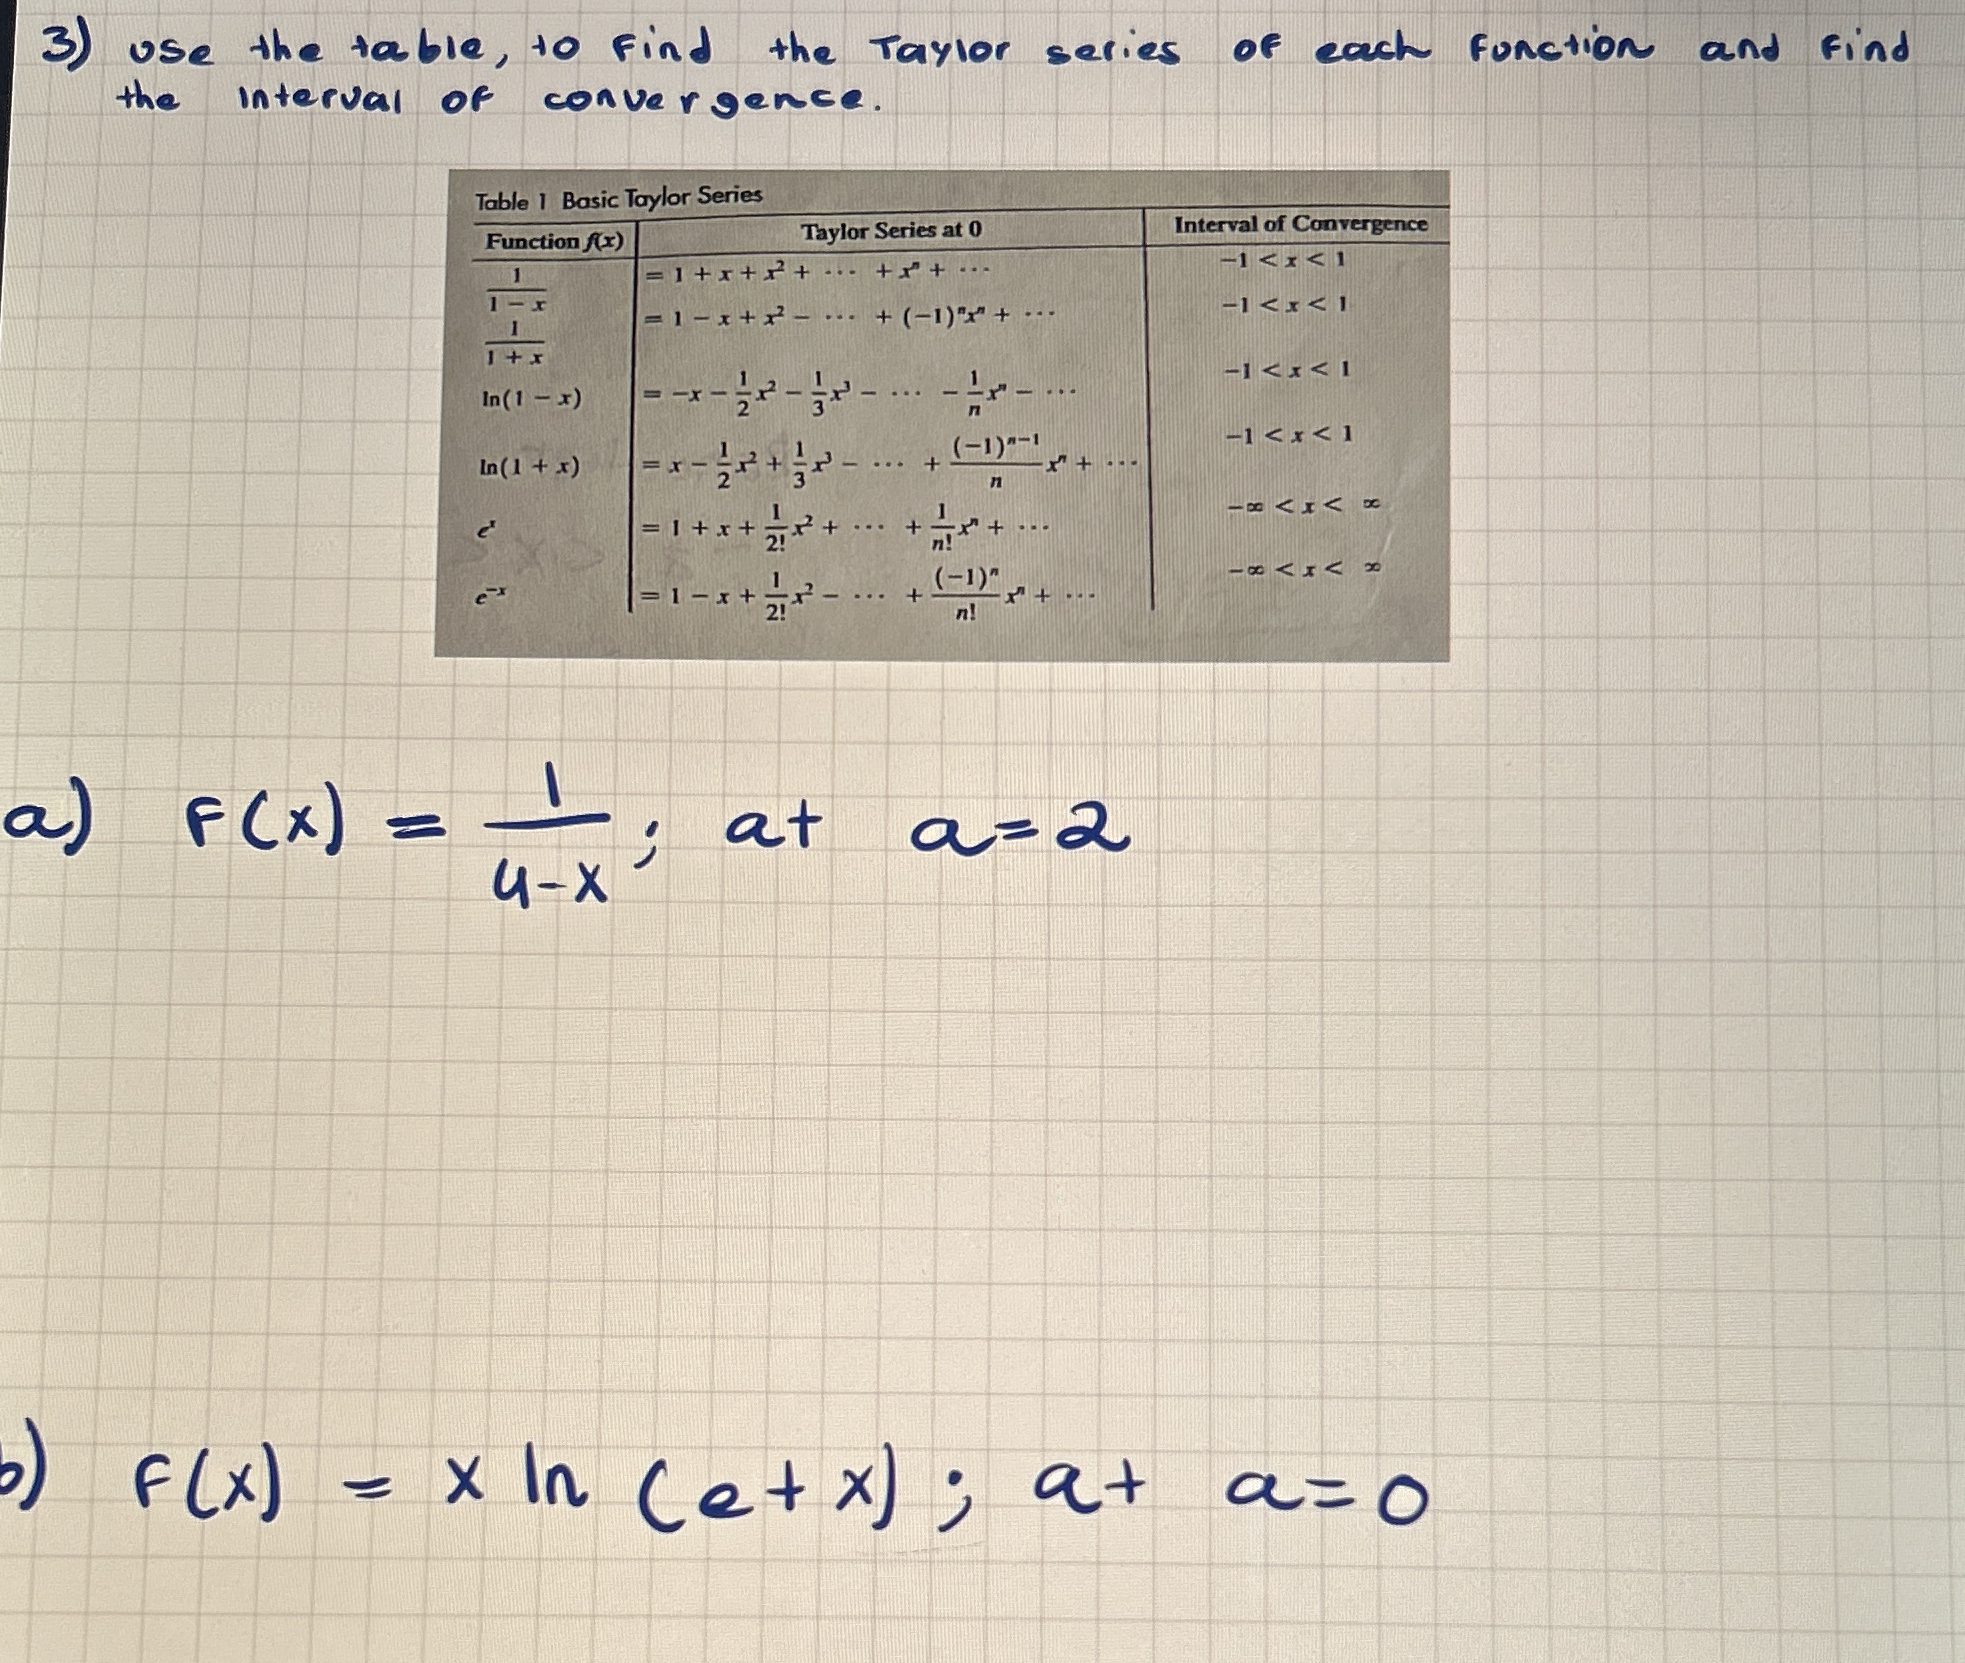 3) use the table, to find the Taylor series of each function and find
the interval of convergence.
Table 1 Basic Taylor Series
Function f(x) Taylor Series at 0 Interval of Convergence
1/(1 − x) = 1 + x + x² + ··· + xⁿ + ··· −1 < x < 1
1/(1 + x) = 1 − x + x² − ··· + (−1)ⁿxⁿ + ··· −1 < x < 1
ln(1 − x) = −x − 1/2 x² − 1/3 x³ − ··· − 1/n xⁿ − ··· −1 < x < 1
ln(1 + x) = x − 1/2 x² + 1/3 x³ − ··· + (−1)ⁿ⁻¹/n xⁿ + ··· −1 < x < 1
eˣ = 1 + x + 1/2! x² + ··· + 1/n! xⁿ + ··· −∞ < x < ∞
e⁻ˣ = 1 − x + 1/2! x² − ··· + (−1)ⁿ/n! xⁿ + ··· −∞ < x < ∞
a) F(x) = 1/(4-x); at a=2
b) F(x) = x ln (e+x); at a=0